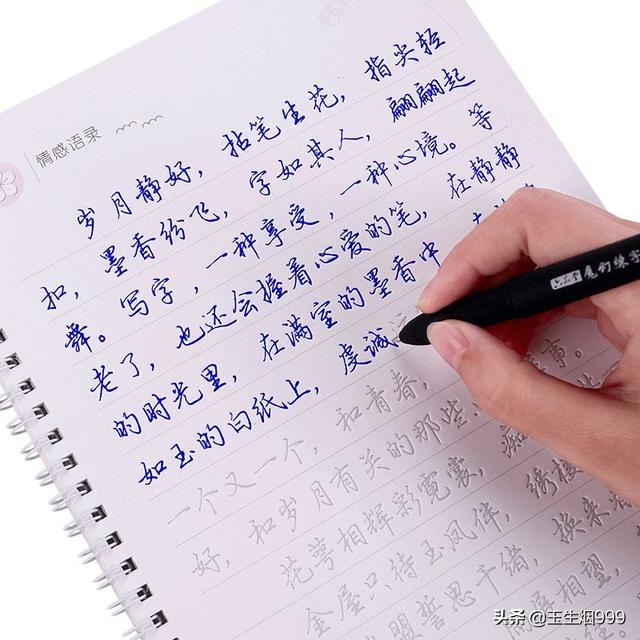 情感语录
岁月静好，拈笔生花，指尖轻
扣，墨香纷飞，字如其人，翩翩起
舞。写字，一种享受，一种心境。等
老了，也还会握着心爱的笔，在静静
的时光里，在满室的墨香中，
如玉的白纸上，虔诚
一个又一个，和青春，
好，和岁月有关的那些 事。
花萼相辉彩霓裳，痴
金屋只待玉凤伴，绣楼
盟誓思千绪，换来
屏相望，
魔幻练字
头条 @玉生烟999